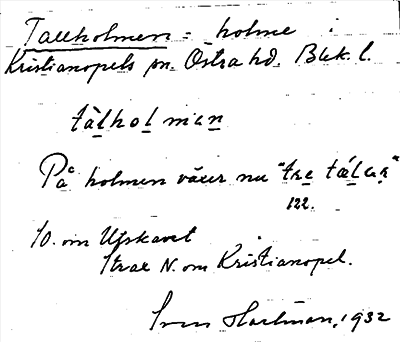 Tallholmen = holme i
Kristianopels sn. Östra hd. Blek. l.
tàlholmen
På holmen växer nu "tre tálar"
122.
SO. om Utskavet
Strax N. om Kristianopel.
Sven Hartman, 1932